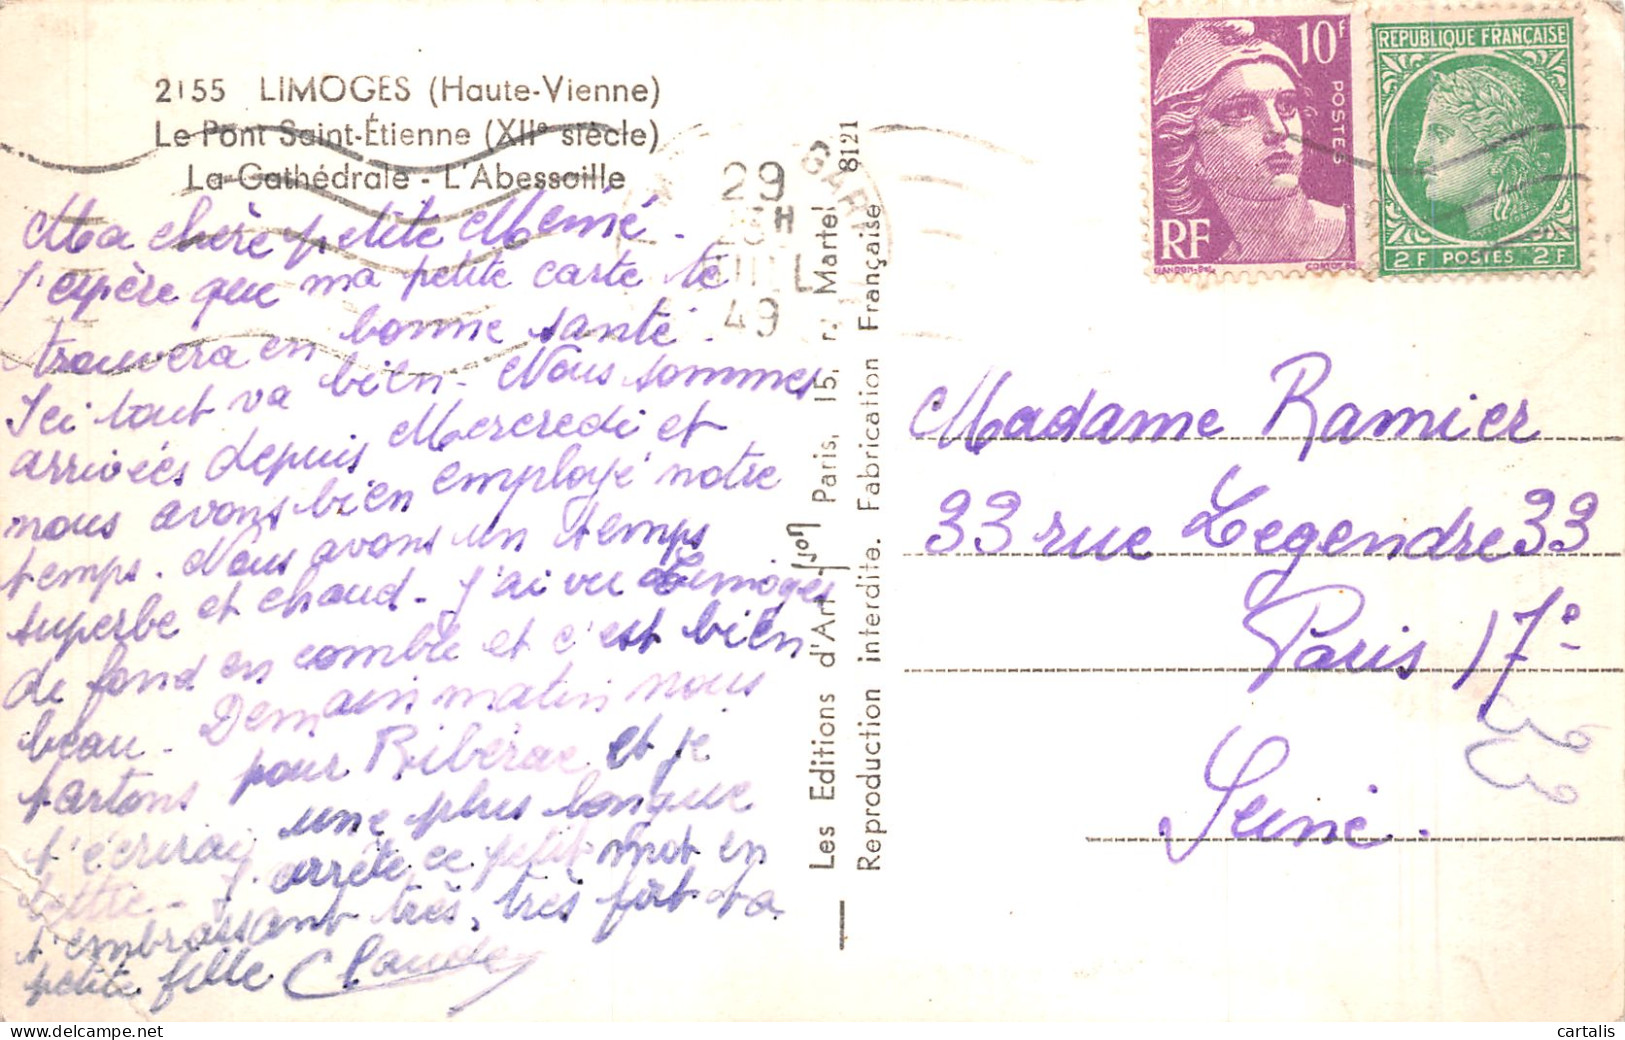 2155 LIMOGES (Haute-Vienne)
Le Pont Saint-Étienne (XIIe siècle)
La Cathédrale - L'Abessaille
Ma chère petite Mémé.
J'espère que ma petite carte te
trouvera en bonne santé.
Ici tout va bien - Nous sommes
arrivées depuis Mercredi et
nous avons bien employé notre
temps. Nous avons un temps
superbe et chaud - J'ai vu Limoges
de fond en comble et c'est bien
beau - Demain matin nous
partons pour Ribérac et je
t'écrirai une plus longue
lettre - J'arrête ce petit mot en
t'embrassant très, très fort Ta
petite fille Claude
29
H
JUIL
49
GARE
Les Editions d'Art Paris, 15, r. Martel 8121
Reproduction interdite. Fabrication Française
10F
POSTES
RF
GANDON-Del.
REPUBLIQUE FRANÇAISE
2F POSTES 2F
Madame Ramier
33 rue Legendre 33
Paris 17e
Seine.
cartalis